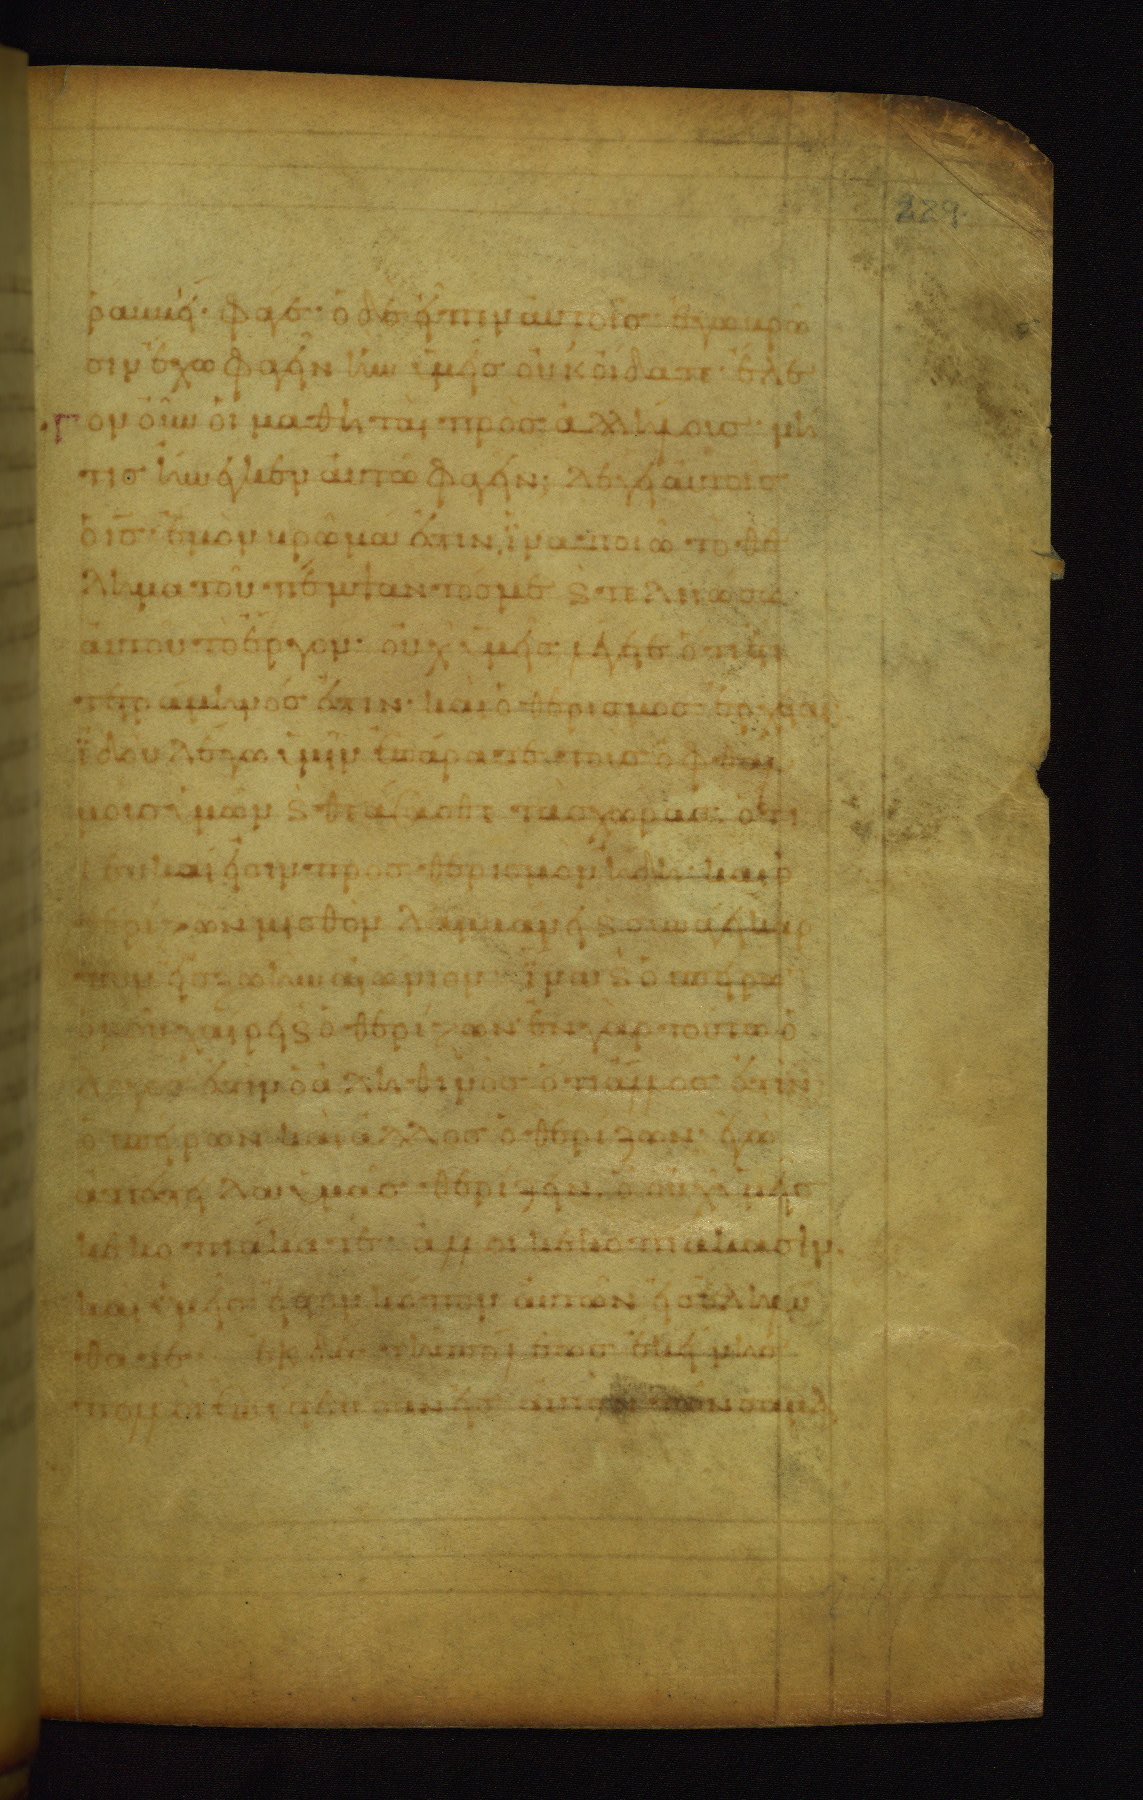 229
ραββεί· φάγε· ὁ δὲ εἶπεν αὐτοῖς· ἐγὼ βρῶ
σιν ἔχω φαγεῖν ἣν ὑμεῖς οὐκ οἴδατε· ἔλε
γον οὖν οἱ μαθηταὶ πρὸς ἀλλήλους· μή
τις ἤνεγκεν αὐτῶ φαγεῖν; λέγει αὐτοῖς
ὁ ις̅· ἐμὸν βρῶμα ἐστιν, ἵνα ποιῶ τὸ θέ
λημα τοῦ πέμψαντός με ϗ τελειώσω
αὐτοῦ τὸ ἔργον· οὐχ ὑμεῖς λέγετε ὅτι ἔτι
τετράμηνός ἐστιν· καὶ ὁ θερισμὸς ἔρχεται
ἰδοὺ λέγω ὑμῖν ἐπάρατε τοὺς ὀφθαλ
μοὺς ὑμῶν ϗ θεάσασθε τὰς χώρας· ὅτι
λευκαί εἰσιν πρὸς θερισμὸν ἤδη· καὶ ὁ
θερίζων μισθὸν λαμβάνει ϗ συνάγει καρ
πὸν εἰς ζωὴν αἰώνιον· ἵνα ϗ ὁ σπείρων
ὁμοῦ χαίρη ϗ ὁ θερίζων· ἐν γὰρ τούτω ὁ
λόγος ἐστιν ὁ ἀληθινὸς ὅτι ἄλλος ἐστιν
ὁ σπείρων καὶ ἄλλος ὁ θερίζων· ἐγὼ
ἀπέστειλα ὑμᾶς θερίζειν, ὃ οὐχ ὑμεῖς
κεκοπιάκατε· ἄλλοι κεκοπιάκασιν.
καὶ ὑμεῖς εἰς τὸν κόπον αὐτῶν εἰσεληλύ
θατε